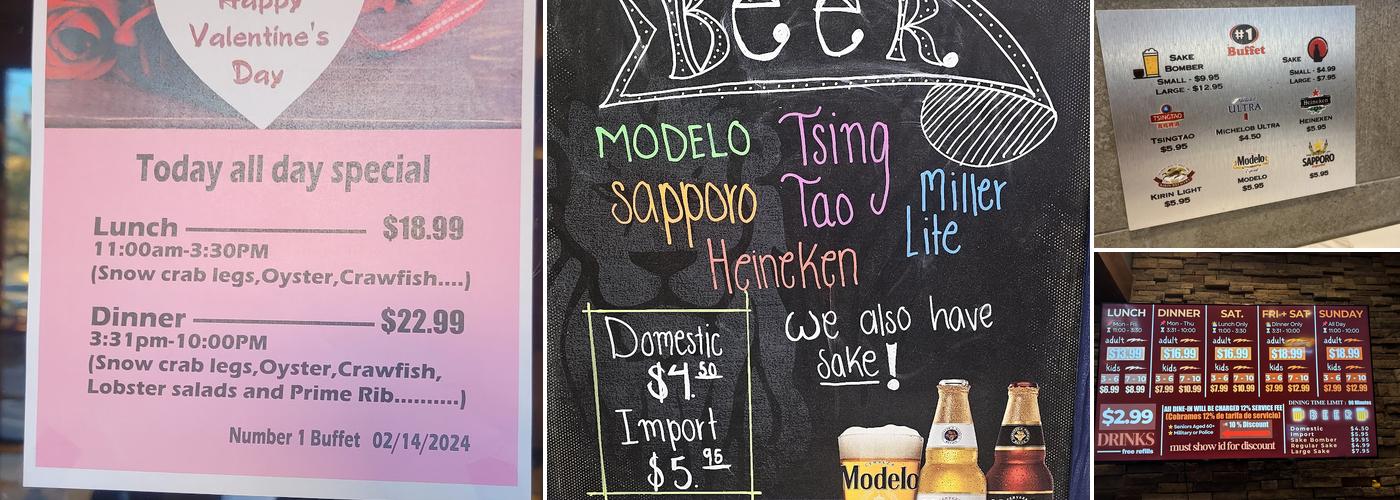 Happy
Valentine's
Day
Today all day special
Lunch $18.99
11:00am-3:30PM
(Snow crab legs,Oyster,Crawfish....)
Dinner $22.99
3:31pm-10:00PM
(Snow crab legs,Oyster,Crawfish,
Lobster salads and Prime Rib..........)
Number 1 Buffet 02/14/2024
BeeR
MODELO
Tsing
Tao
sapporo
Miller
Lite
Heineken
we also have
sake!
Domestic
$4.50
Import
$5.95
Modelo
#1
Buffet
SAKE
BOMBER
SMALL - $9.95
LARGE - $12.95
SAKE
SMALL - $4.99
LARGE - $7.95
TSINGTAO
TSINGTAO
$5.95
ULTRA
MICHELOB ULTRA
$4.50
Heineken
HEINEKEN
$5.95
KIRIN LIGHT
$5.95
Modelo
MODELO
$5.95
SAPPORO
$5.95
LUNCH
Mon - Fri
11:00 - 3:30
adult
$13.99
kids
3 - 6 7 - 10
$6.99 $8.99
DINNER
Mon - Thu
3:31 - 10:00
adult
$16.99
kids
3 - 6 7 - 10
$7.99 $10.99
SAT.
Lunch Only
11:00 - 3:30
adult
$16.99
kids
3 - 6 7 - 10
$7.99 $10.99
FRI + SAT
Dinner Only
3:31 - 10:00
adult
$18.99
kids
3 - 6 7 - 10
$7.99 $12.99
SUNDAY
All Day
11:00 - 10:00
adult
$18.99
kids
3 - 6 7 - 10
$7.99 $12.99
$2.99
DRINKS
free refills
All DINE-IN WILL BE CHARGED 12% SERVICE FEE
(Cobramos 12% de tarifa de servicio)
Seniors Aged 60+
Military or Police
10 % Discount
must show id for discount
DINING TIME LIMIT : 90 Minutes
BEER
Domestic $4.50
Import $5.95
Sake Bomber $9.95
Regular Sake $4.99
Large Sake $7.95